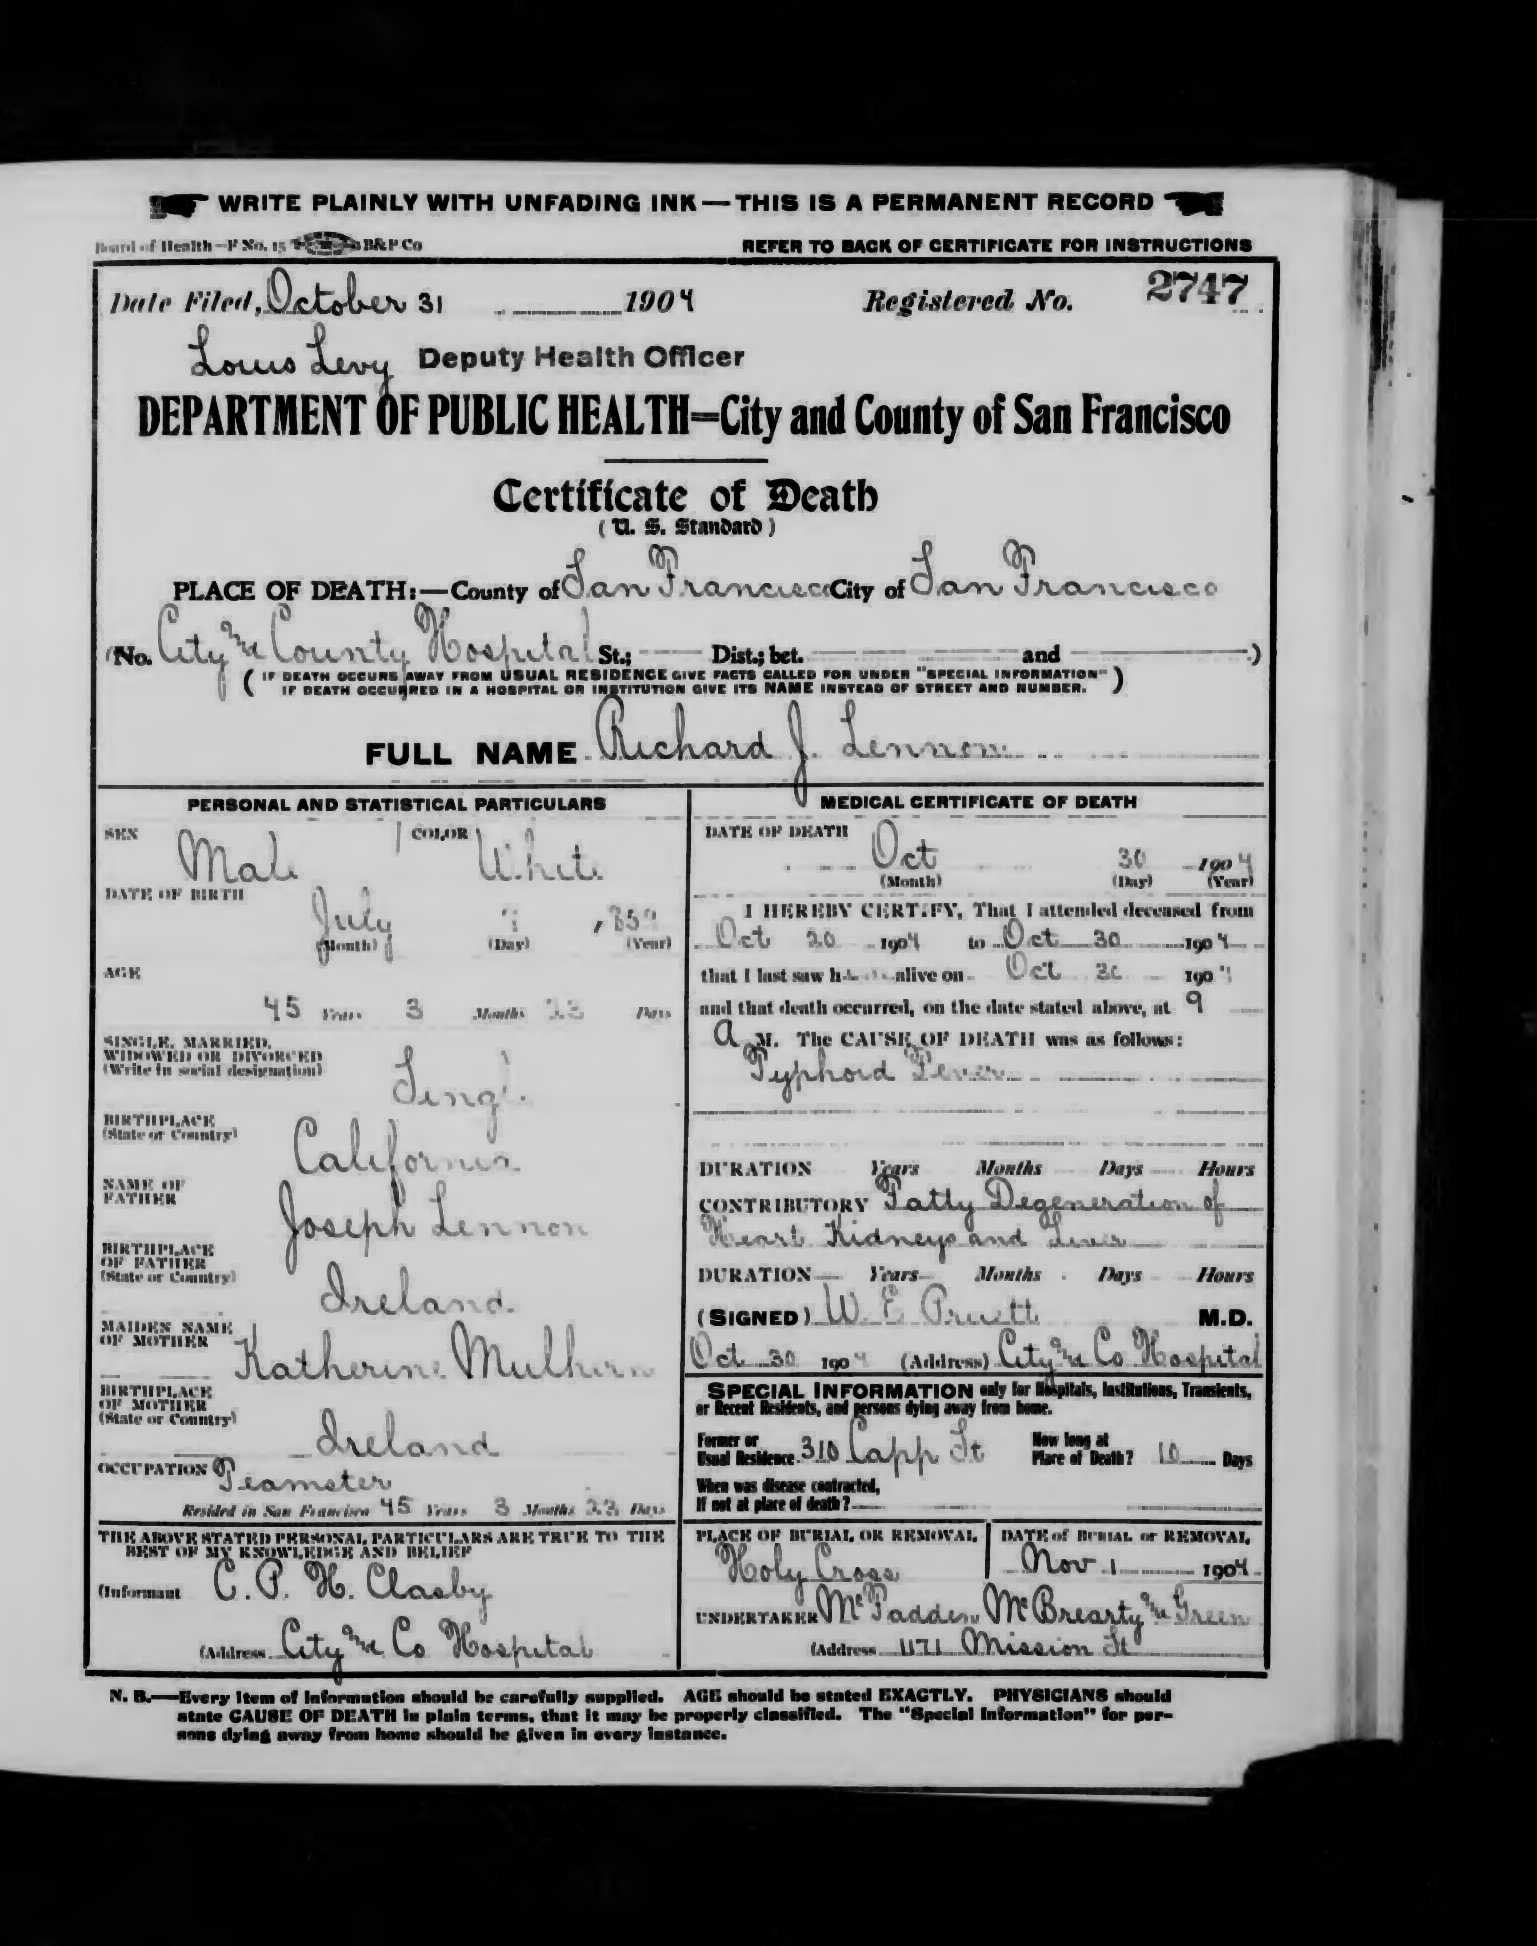 WRITE PLAINLY WITH UNFADING INK—THIS IS A PERMANENT RECORD
Board of Health—F No. 15 B&P Co REFER TO BACK OF CERTIFICATE FOR INSTRUCTIONS
Date Filed, October 31 1904 Registered No. 2747
Louis Levy Deputy Health Officer
DEPARTMENT OF PUBLIC HEALTH=City and County of San Francisco
Certificate of Death
(U. S. Standard)
PLACE OF DEATH:—County of San Francisco City of San Francisco
(No. City and County Hospital St.; Dist.; bet. and )
(IF DEATH OCCURS AWAY FROM USUAL RESIDENCE GIVE FACTS CALLED FOR UNDER "SPECIAL INFORMATION"
IF DEATH OCCURRED IN A HOSPITAL OR INSTITUTION GIVE ITS NAME INSTEAD OF STREET AND NUMBER.)
FULL NAME Richard J. Lennon
PERSONAL AND STATISTICAL PARTICULARS
SEX Male COLOR White
DATE OF BIRTH
July
(Month) (Day) (Year)
AGE
45 Years 3 Months 23 Days
SINGLE, MARRIED,
WIDOWED OR DIVORCED
(Write in social designation)
Single
BIRTHPLACE
(State or Country)
California
NAME OF
FATHER
Joseph Lennon
BIRTHPLACE
OF FATHER
(State or Country)
Ireland
MAIDEN NAME
OF MOTHER
Katherine Mulhern
BIRTHPLACE
OF MOTHER
(State or Country)
Ireland
OCCUPATION Teamster
Resided in San Francisco 45 Years 3 Months 23 Days
THE ABOVE STATED PERSONAL PARTICULARS ARE TRUE TO THE
BEST OF MY KNOWLEDGE AND BELIEF
(Informant C. P. H. Clasby
(Address City and Co Hospital
MEDICAL CERTIFICATE OF DEATH
DATE OF DEATH
Oct 30 1904
(Month) (Day) (Year)
I HEREBY CERTIFY, That I attended deceased from
Oct 20 1904 to Oct 30 1904
that I last saw h alive on Oct 30 190
and that death occurred, on the date stated above, at 9
A M. The CAUSE OF DEATH was as follows:
Typhoid Fever
DURATION Years Months Days Hours
CONTRIBUTORY Fatty Degeneration of
Heart Kidneys and Liver
DURATION Years Months Days Hours
(SIGNED) W. E. Pruett M.D.
Oct 30 1904 (Address) City and Co Hospital
SPECIAL INFORMATION only for Hospitals, Institutions, Transients,
or Recent Residents, and persons dying away from home.
Former or
Usual Residence 310 Capp St
How long at
Place of Death? 10 Days
When was disease contracted,
If not at place of death?
PLACE OF BURIAL OR REMOVAL
Holy Cross
DATE of BURIAL or REMOVAL
Nov 1 1904
UNDERTAKER McFadden McBrearty and Green
(Address 1171 Mission St
N. B.—Every item of information should be carefully supplied. AGE should be stated EXACTLY. PHYSICIANS should
state CAUSE OF DEATH in plain terms, that it may be properly classified. The "Special Information" for per-
sons dying away from home should be given in every instance.